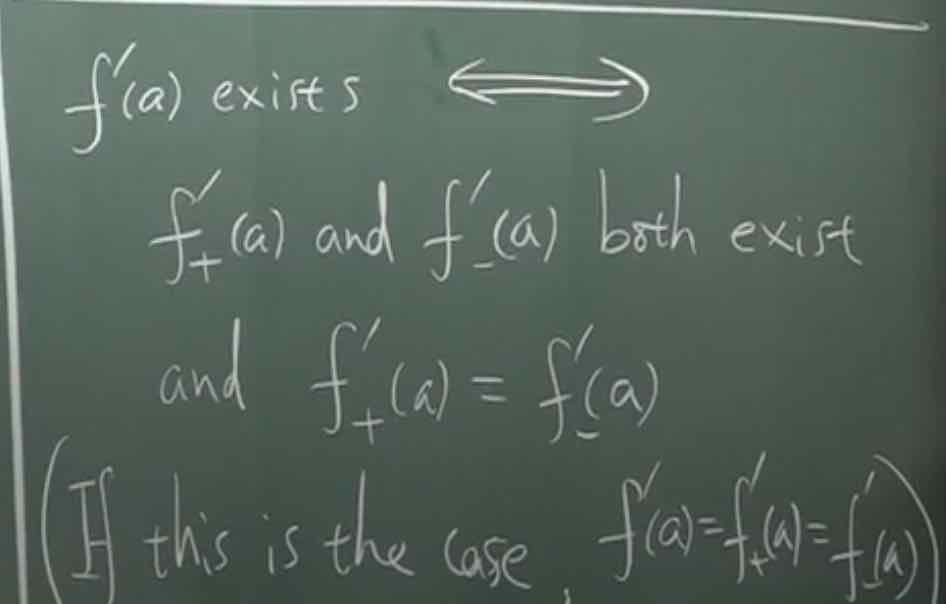 f'(a) exists ⟺
f'₊(a) and f'₋(a) both exist
and f'₊(a) = f'₋(a)
(If this is the case, f'(a)=f'₊(a)=f'₋(a))